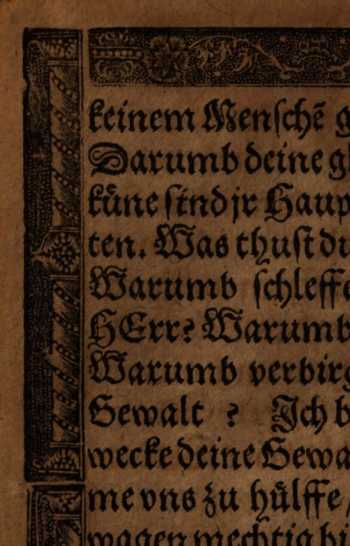 keinem Menschē g
Darumb deine gl
küne sind jr Haup
ten. Was thust du
Warumb schleffe
HErr? Warumb
Warumb verbirg
Gewalt ? Ich b
wecke deine Gewa
me vns zu hülffe /
wagen mechtig hi